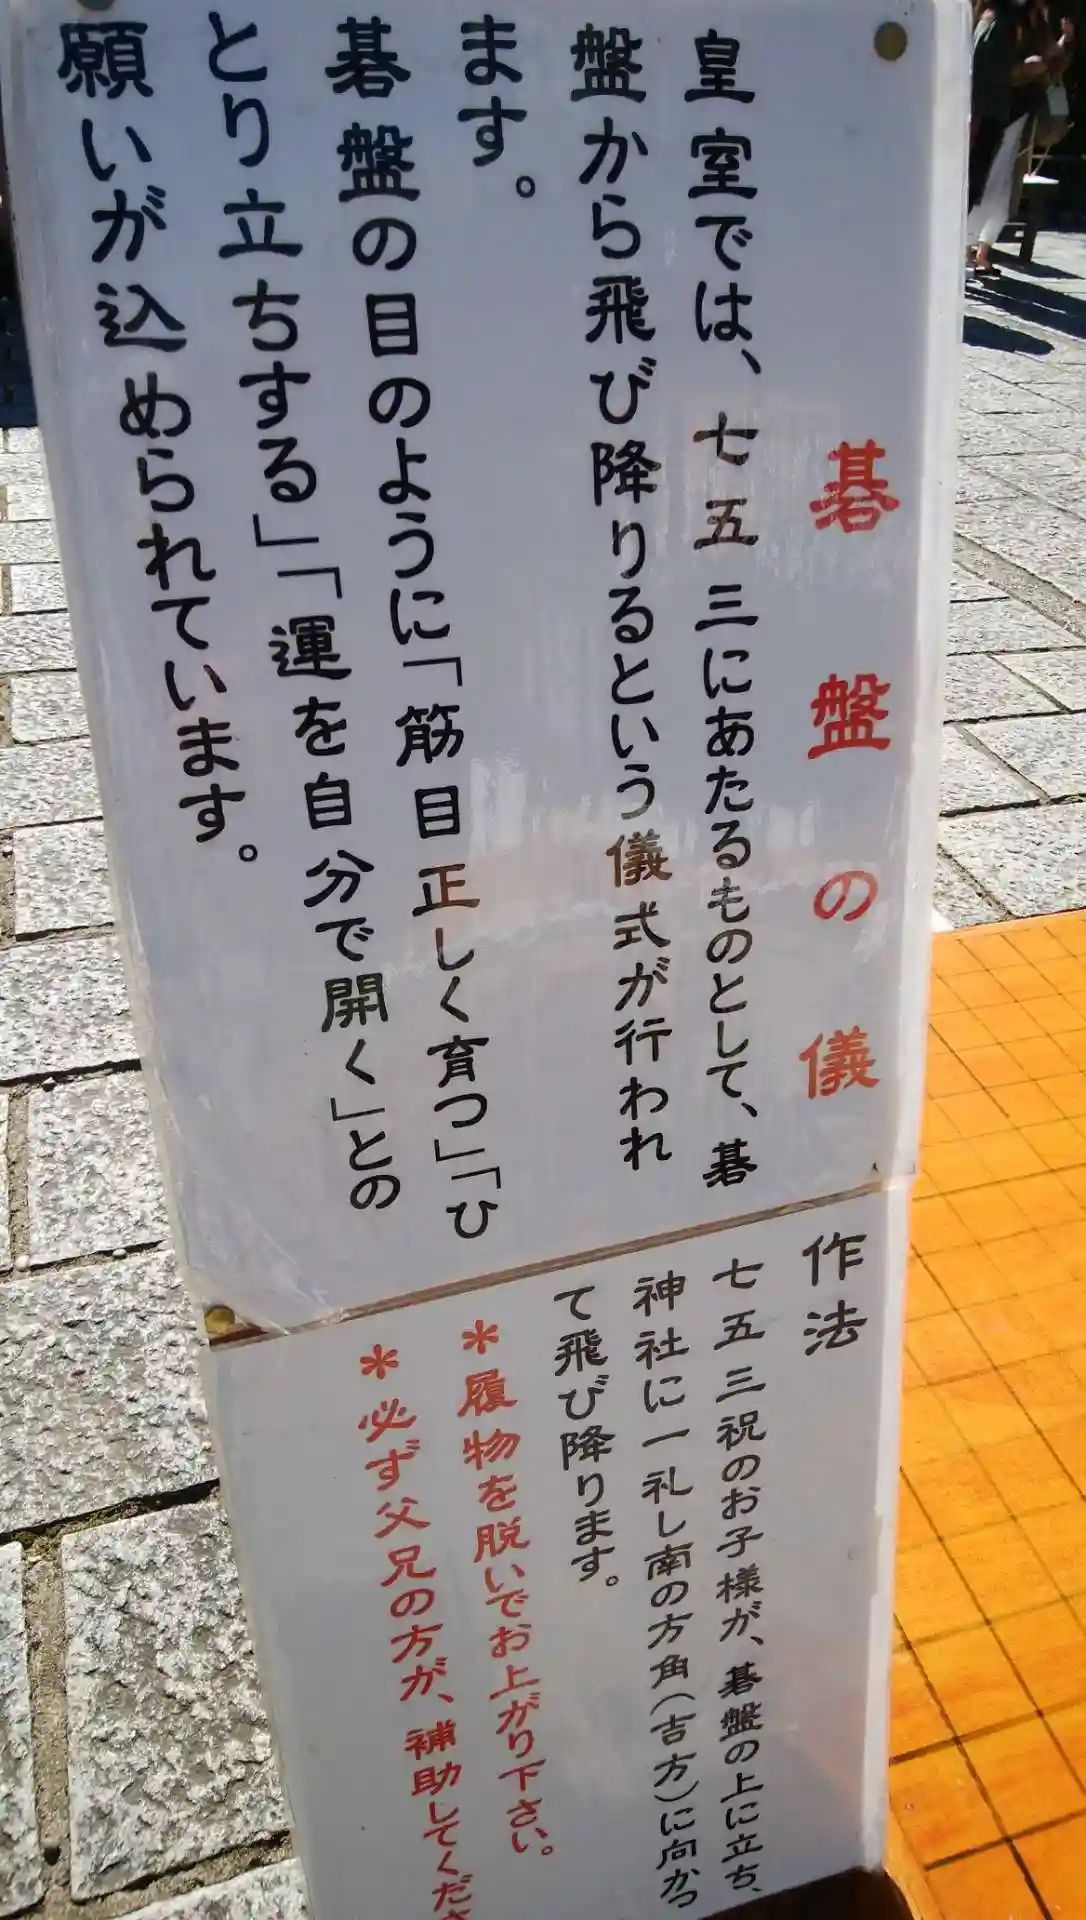 碁盤の儀
皇室では、七五三にあたるものとして、碁
盤から飛び降りるという儀式が行われ
ます。
碁盤の目のように「筋目正しく育つ」「ひ
とり立ちする」「運を自分で開く」との
願いが込められています。
作法
七五三祝のお子様が、碁盤の上に立ち、
神社に一礼し南の方角(吉方)に向かっ
て飛び降ります。
*履物を脱いでお上がり下さい。
*必ず父兄の方が、補助してくださ